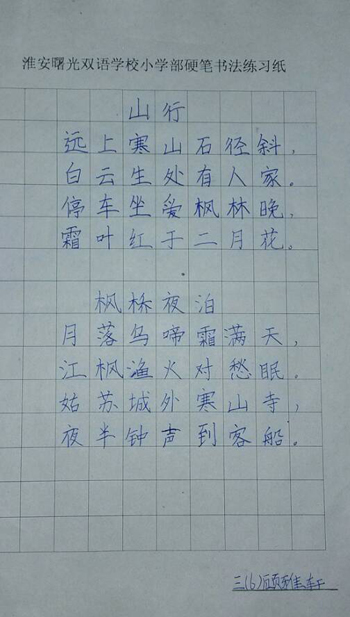 淮安曙光双语学校小学部硬笔书法练习纸
山行
远上寒山石径斜,
白云生处有人家。
停车坐爱枫林晚,
霜叶红于二月花。
枫桥夜泊
月落乌啼霜满天,
江枫渔火对愁眠。
姑苏城外寒山寺,
夜半钟声到客船。
三(6)顾雅轩